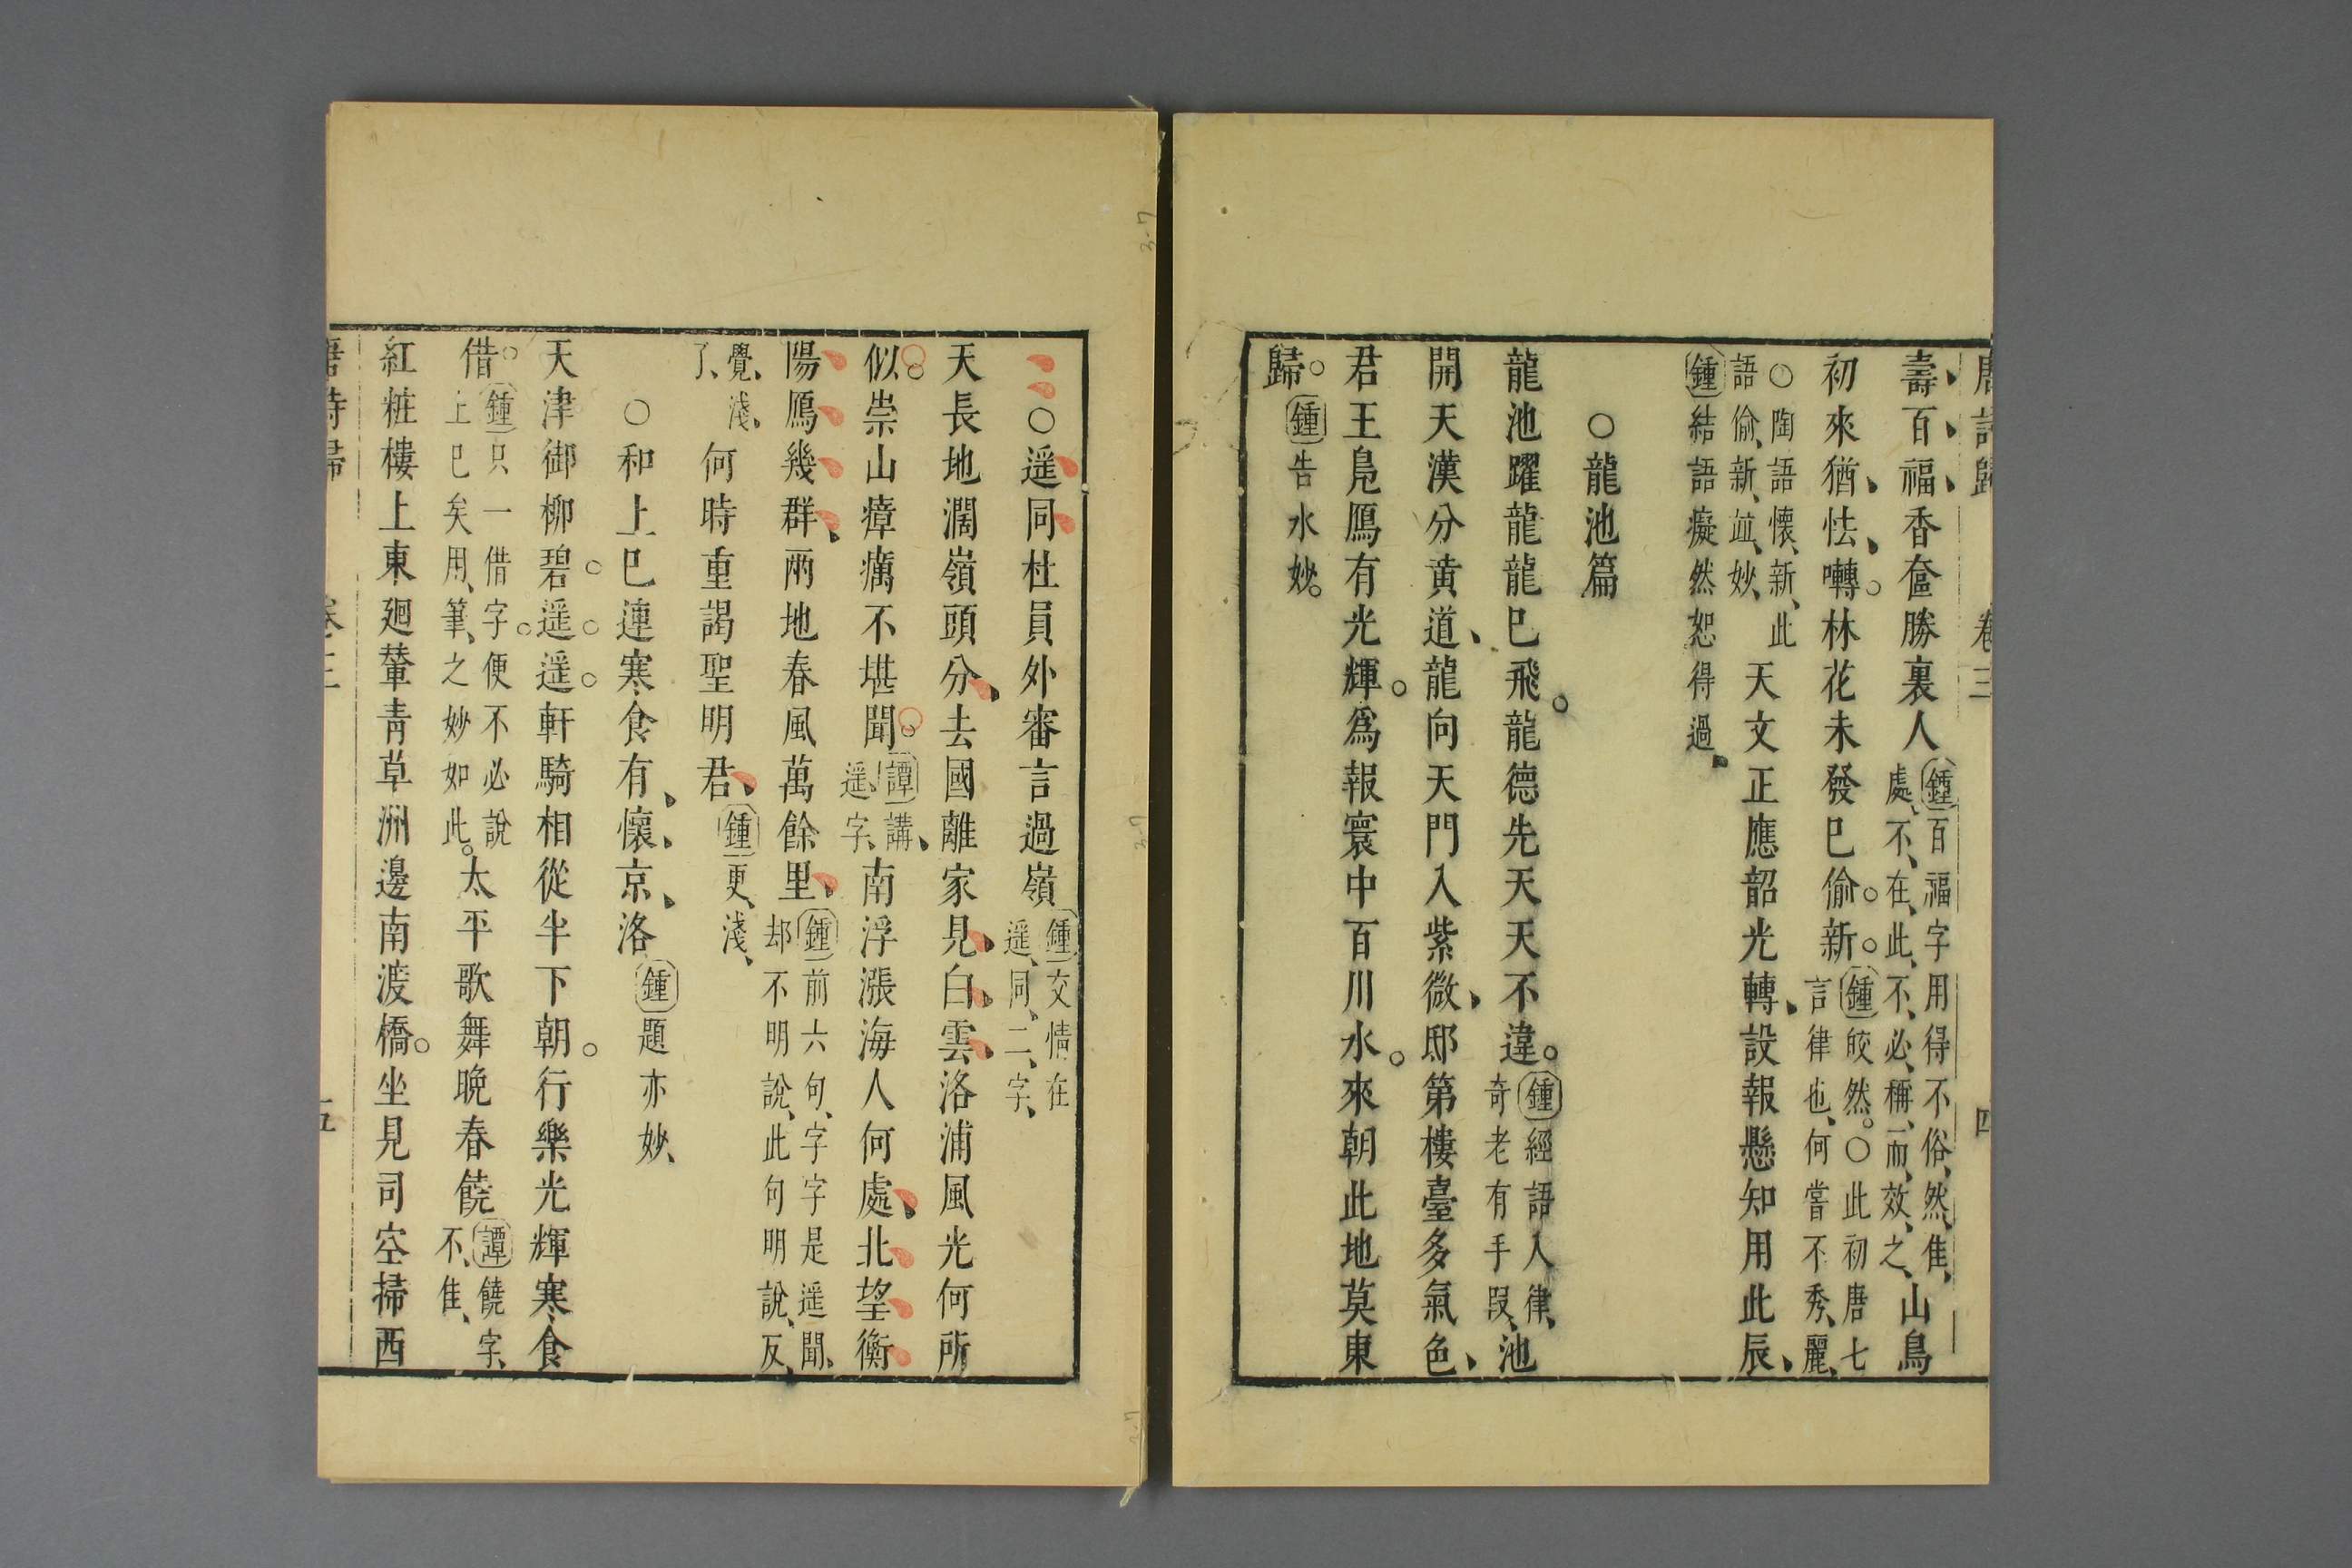 唐詩歸 卷三 四
壽百福香奩勝裏人 鍾 百福字用得不俗然佳處不在此不必稱而效之 山鳥
初來猶怯囀林花未發巳偷新 鍾 皎然○此初唐七言律也何嘗不秀麗
○陶語懷新此語偷新並妙 天文正應韶光轉設報懸知用此辰
鍾 結語癡然恕得過
○龍池篇
龍池躍龍龍巳飛龍德先天天不違 鍾 經語入律奇老有手段 池
開天漢分黄道龍向天門入紫微邸第樓臺多氣色
君王鳧鴈有光輝爲報寰中百川水來朝此地莫東
歸 鍾 告水妙
○遥同杜員外審言過嶺 鍾 交情在遥同二字
天長地濶嶺頭分去國離家見白雲洛浦風光何所
似崇山瘴癘不堪聞 譚 講遥字 南浮漲海人何處北望衡
陽鴈幾群兩地春風萬餘里 鍾 前六句字字是遥聞却不明說此句明說反
覺淺了 何時重謁聖明君 鍾 更淺
○和上巳連寒食有懷京洛 鍾 題亦妙
天津御柳碧遥遥軒騎相從半下朝行樂光輝寒食
借 鍾 只一借字便不必說上巳矣用筆之妙如此 太平歌舞晚春饒 譚 饒字不佳
紅粧樓上東廻輦青草洲邊南渡橋坐見司空掃西
唐詩歸 卷三 五